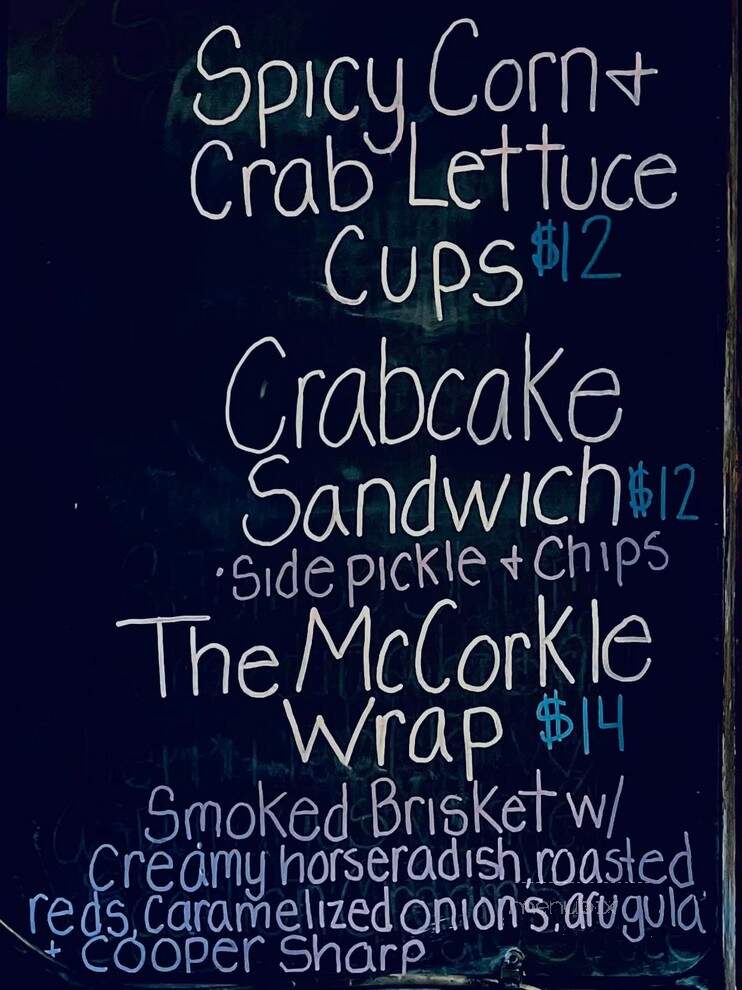 Spicy Corn +
Crab Lettuce
Cups $12
Crabcake
Sandwich $12
·Side pickle + Chips
The McCorkle
Wrap $14
Smoked Brisket w/
Creamy horseradish, roasted
reds, caramelized onions, arugula
+ Cooper Sharp
menupix